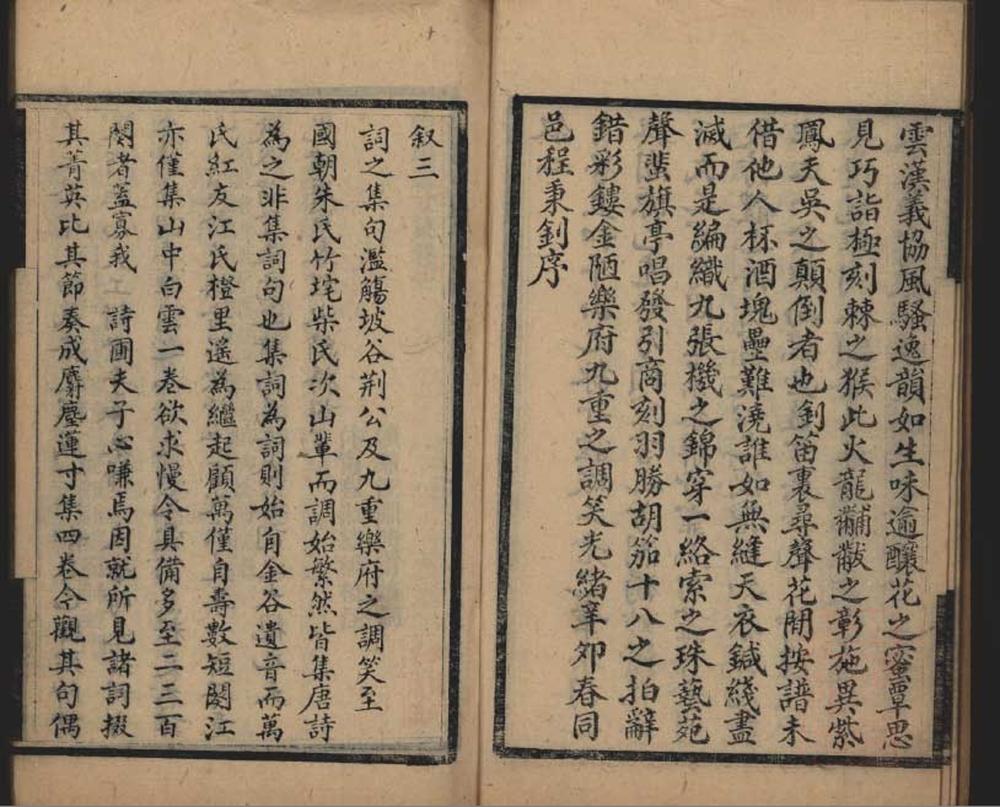 雲漢義協風騷逸韻如生味逾釀花之蜜覃思
見巧詣極刻棘之猴此火龍黼黻之彰施異紫
鳳天吳之顛倒者也釗笛裏尋聲花間按譜未
借他人杯酒塊壘難澆誰如無縫天衣鍼綫盡
滅而是編織九張機之錦穿一絡索之珠藝苑
聲蜚旗亭唱發引商刻羽勝胡笳十八之拍辭
錯彩鏤金陋樂府九重之調笑光緒辛卯春同
邑程秉釗序
叙三
詞之集句濫觴坡谷荆公及九重樂府之調笑至
國朝朱氏竹垞柴氏次山輩而調始繁然皆集唐詩
為之非集詞句也集詞為詞則始自金谷遺音而萬
氏紅友江氏橙里遙為繼起顧萬僅自壽數短闋江
亦僅集山中白雲一卷欲求慢令具備多至二三百
闋者蓋寡我 詩圃夫子心嗛焉因就所見諸詞掇
其菁英比其節奏成麝塵蓮寸集四卷今觀其句偶